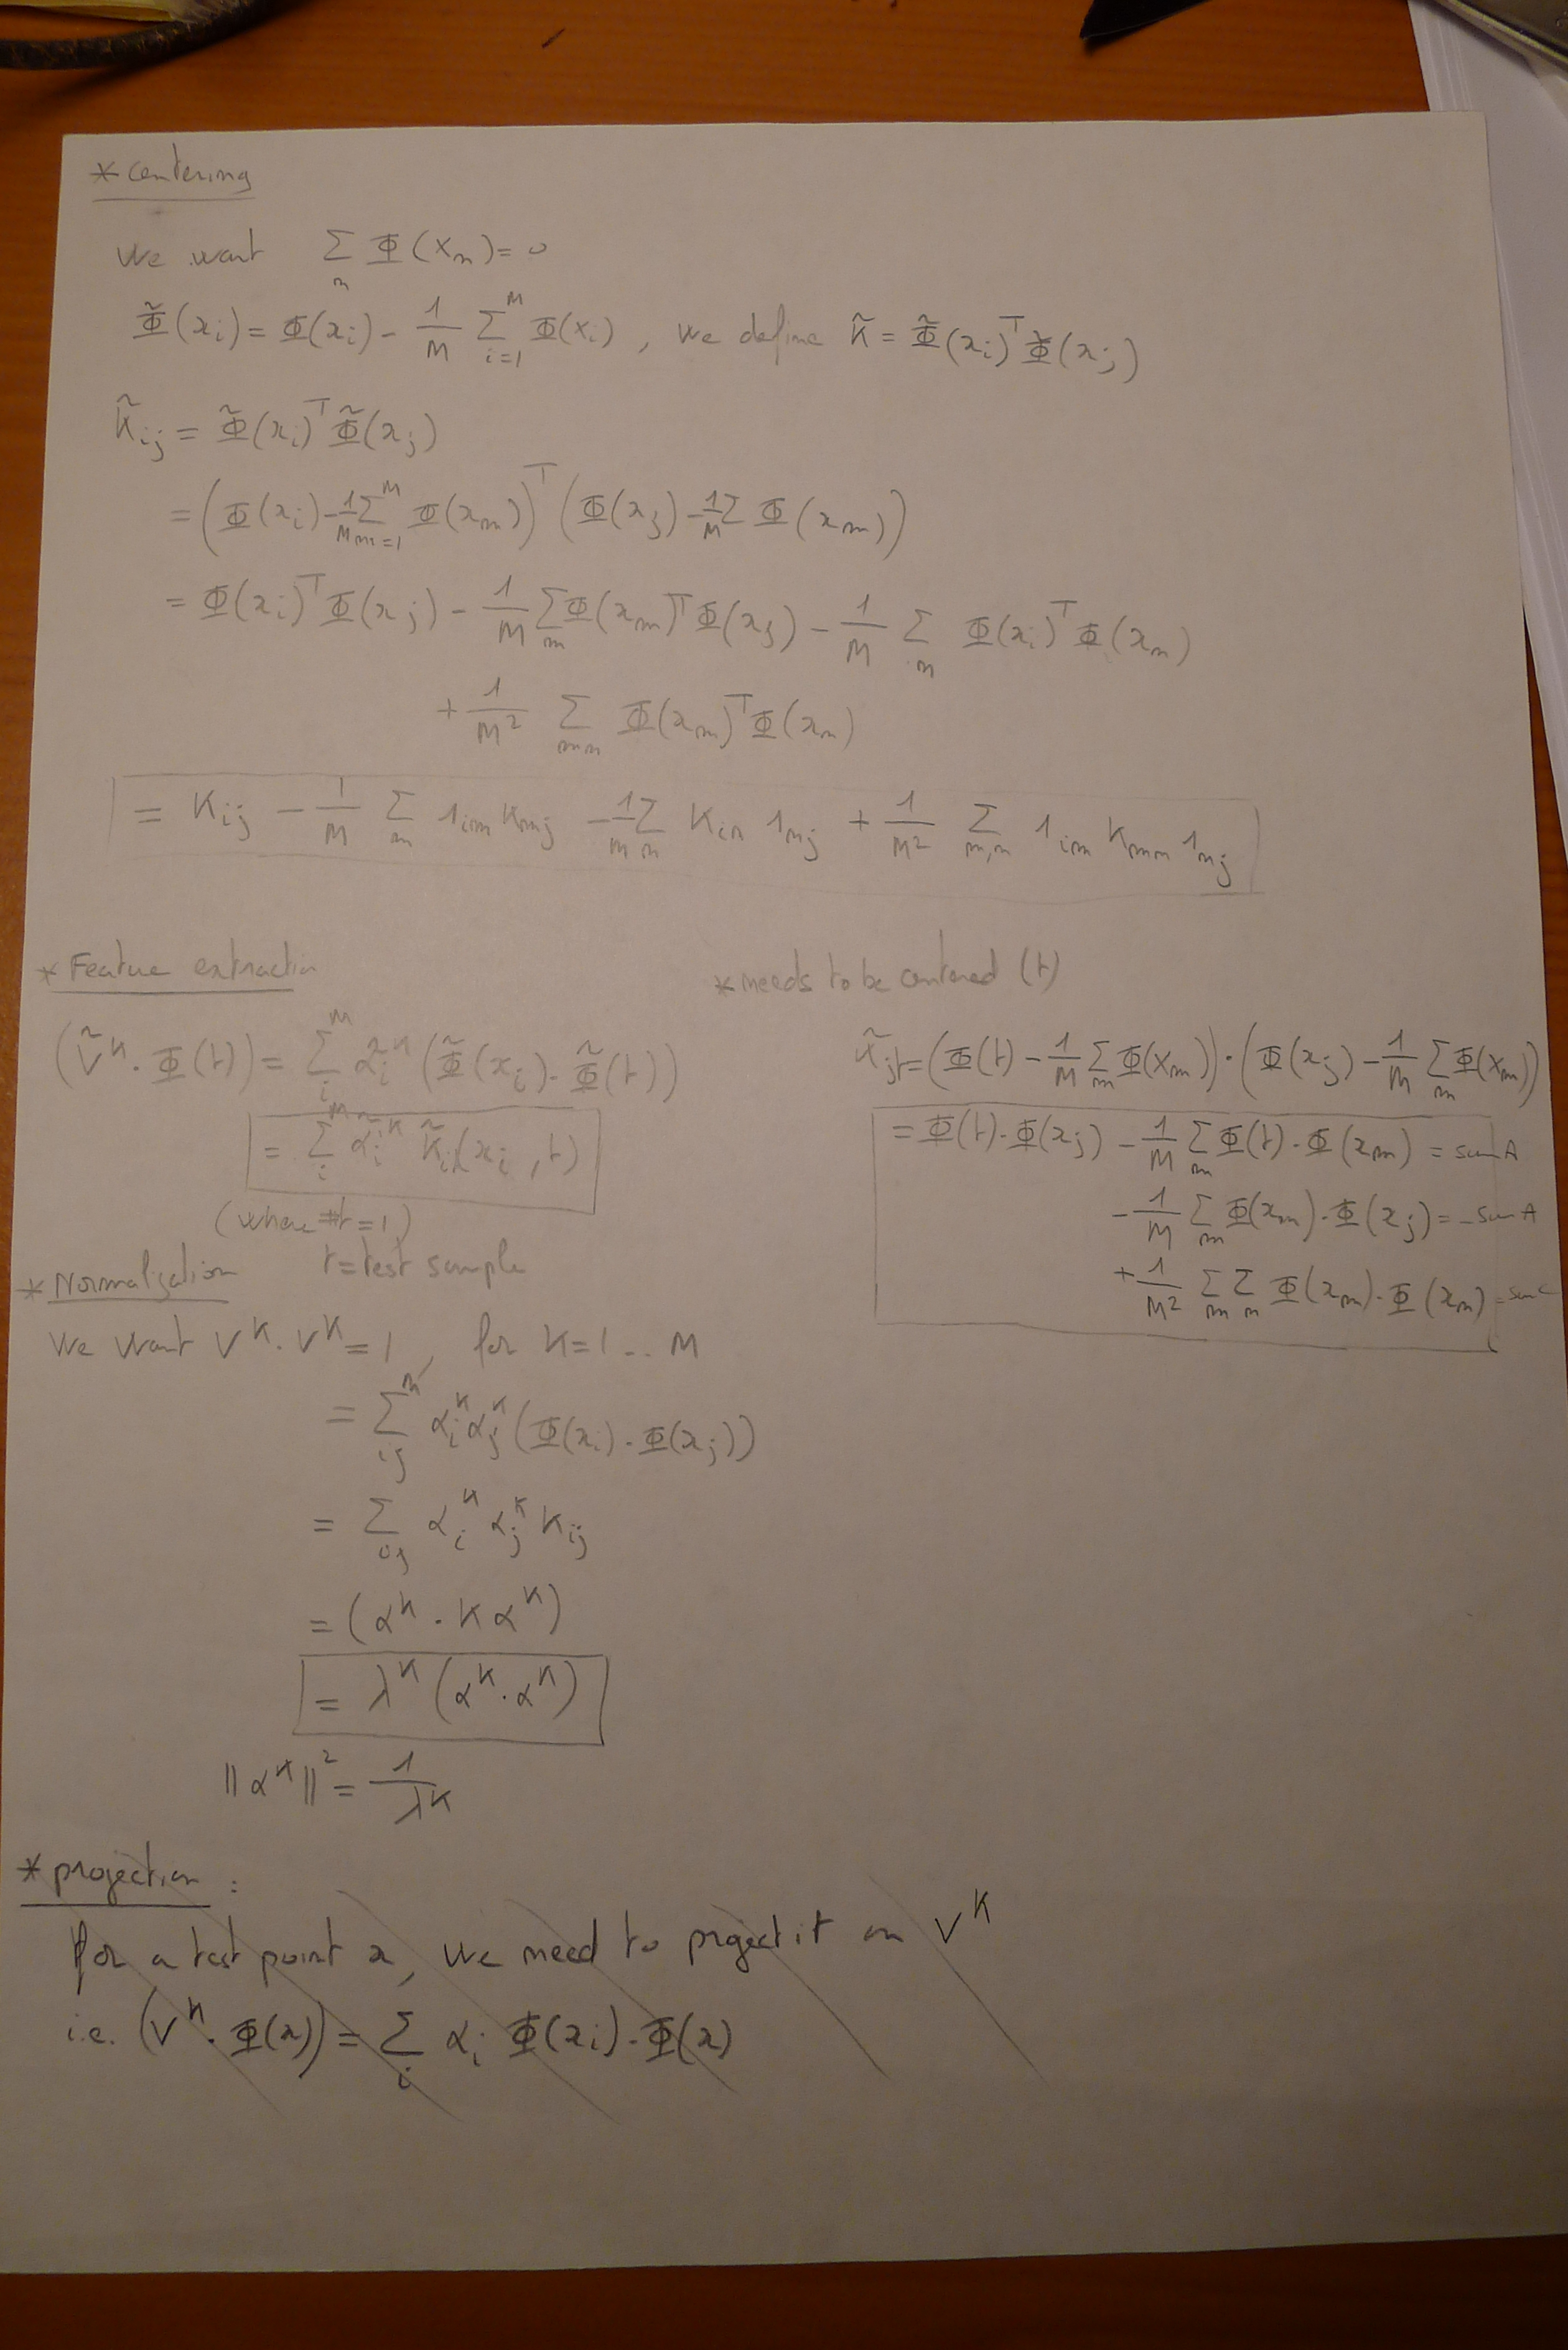 * Centering
We want Σ_n Φ(x_n) = 0
Φ̃(x_i) = Φ(x_i) - 1/M Σ_{i=1}^M Φ(x_i) , we define K̃ = Φ̃(x_i)^T Φ̃(x_j)
K̃_ij = Φ̃(x_i)^T Φ̃(x_j)
= (Φ(x_i) - 1/M Σ_{m=1}^M Φ(x_m))^T (Φ(x_j) - 1/M Σ Φ(x_m))
= Φ(x_i)^T Φ(x_j) - 1/M Σ_m Φ(x_m)^T Φ(x_j) - 1/M Σ_n Φ(x_i)^T Φ(x_n)
+ 1/M² Σ_{mn} Φ(x_m)^T Φ(x_n)
= K_ij - 1/M Σ_m 1_im K_mj - 1/M Σ_n K_in 1_nj + 1/M² Σ_{m,n} 1_im K_mn 1_nj
* Feature extraction
(Ṽ^K . Φ(t)) = Σ_i^M α̃_i^K (Φ̃(x_i) . Φ̃(t))
= Σ_i^M α̃_i^K K̃_i(x_i , t)
(where #t = 1)
t = test sample
* needs to be centered (t)
K̃_jt = (Φ(t) - 1/M Σ_m Φ(x_m)) . (Φ(x_j) - 1/M Σ_m Φ(x_m))
= Φ(t) . Φ(x_j) - 1/M Σ_m Φ(t) . Φ(x_m) = sum A
- 1/M Σ_m Φ(x_m) . Φ(x_j) = - sum A
+ 1/M² Σ_m Σ_n Φ(x_m) . Φ(x_n) = sum C
* Normalization
We want V^K . V^K = 1 , for K = 1 .. M
= Σ_ij^M α_i^K α_j^K (Φ(x_i) . Φ(x_j))
= Σ_ij α_i^K α_j^K K_ij
= (α^K . K α^K)
= λ^K (α^K . α^K)
||α^K||² = 1/λ^K
* projection :
for a test point x, we need to project it on V^K
i.e. (V^K . Φ(x)) = Σ_i α_i Φ(x_i) . Φ(x)